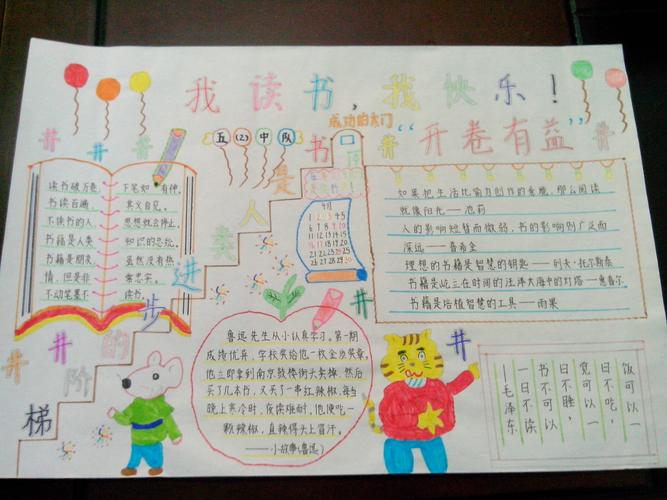 我读书,我快乐!
成功的大门
“开卷有益”
五(2)中队
书
是
人
类
进
步
的
阶
梯
读书破万卷,
书读百遍,
不读书的人,
书籍是人类
书籍是朋友,
情,但是非
不动笔墨不
下笔如有神。
其义自见。
思想就会停止。
知识的总统。
虽然没有热
常忠实。
读书。
4月
1 2 3 4 5
6 7 8 9 10
11 12 13 14 15
16 17 18 19 20
如果把生活比喻为创作的意境,那么阅读
就像阳光——池莉
人的影响短暂而微弱,书的影响则广泛而
深远——普希金
理想的书籍是智慧的钥匙——列夫·托尔斯泰
书籍是屹立在时间的汪洋大海中的灯塔——惠普尔
书籍是培植智慧的工具——雨果
鲁迅先生从小认真学习。第一期
成绩优异,学校奖给他一枚金质奖章。
他立即拿到南京鼓楼街头卖掉,然后
买了几本书,又买了一串红辣椒,每当
晚上寒冷时,夜读难耐,他便吃一
颗辣椒,直辣得头上冒汗。
——小故事(鲁迅)
饭可以一
日不吃,
觉可以一
日不睡,
书不可以
一日不读
—毛泽东